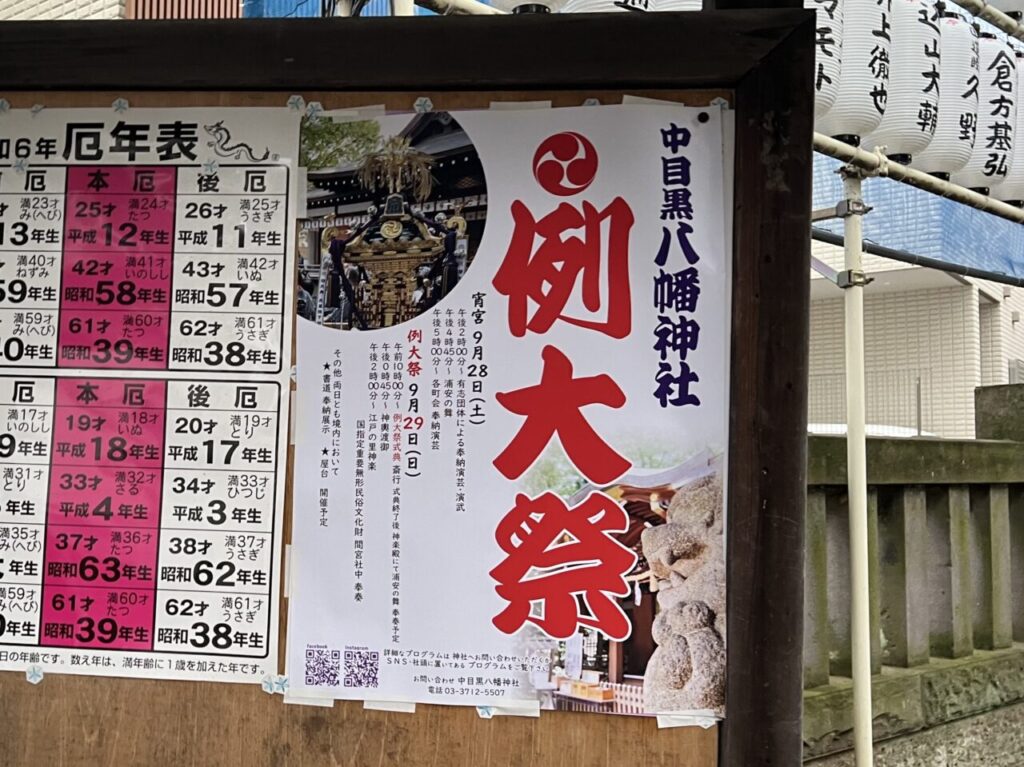 和6年 厄年表
厄 本厄 後厄
満23才 み(へび) 25才 満24才 たつ 26才 満25才 うさぎ
13年生 平成12年生 平成11年生
満40才 ねずみ 42才 満41才 いのしし 43才 満42才 いぬ
59年生 昭和58年生 昭和57年生
満59才 み(へび) 61才 満60才 たつ 62才 満61才 うさぎ
40年生 昭和39年生 昭和38年生
厄 本厄 後厄
満17才 いのしし 19才 満18才 いぬ 20才 満19才 とり
19年生 平成18年生 平成17年生
満31才 とり 33才 満32才 さる 34才 満33才 ひつじ
年生 平成4年生 平成3年生
満35才 み(へび) 37才 満36才 たつ 38才 満37才 うさぎ
年生 昭和63年生 昭和62年生
満59才 み(へび) 61才 満60才 たつ 62才 満61才 うさぎ
年生 昭和39年生 昭和38年生
日の年齢です。数え年は、満年齢に1歳を加えた年です。
中目黒八幡神社
例大祭
宵宮 9月28日(土)
午後2時00分~ 有志団体による奉納演芸・演武
午後4時45分~ 浦安の舞
午後5時00分~ 各町会 奉納演芸
例大祭 9月29日(日)
午前10時00分~ 例大祭式典 斎行 式典終了後 神楽殿にて浦安の舞 奉奏予定
午後0時45分~ 神輿渡御
午後2時00分~ 江戸の里神楽
国指定重要無形民俗文化財 間宮社中 奉奏
その他 両日とも境内において
★書道 奉納展示 ★屋台 開催予定
facebook instagram
詳細なプログラムは 神社へお問い合わせいただくか
SNS・社頭に置いてある プログラムをご覧下さい
お問い合わせ 中目黒八幡神社
電話 03-3712-5507
マモト
井上徹也
込山大輔
久野
倉方基弘